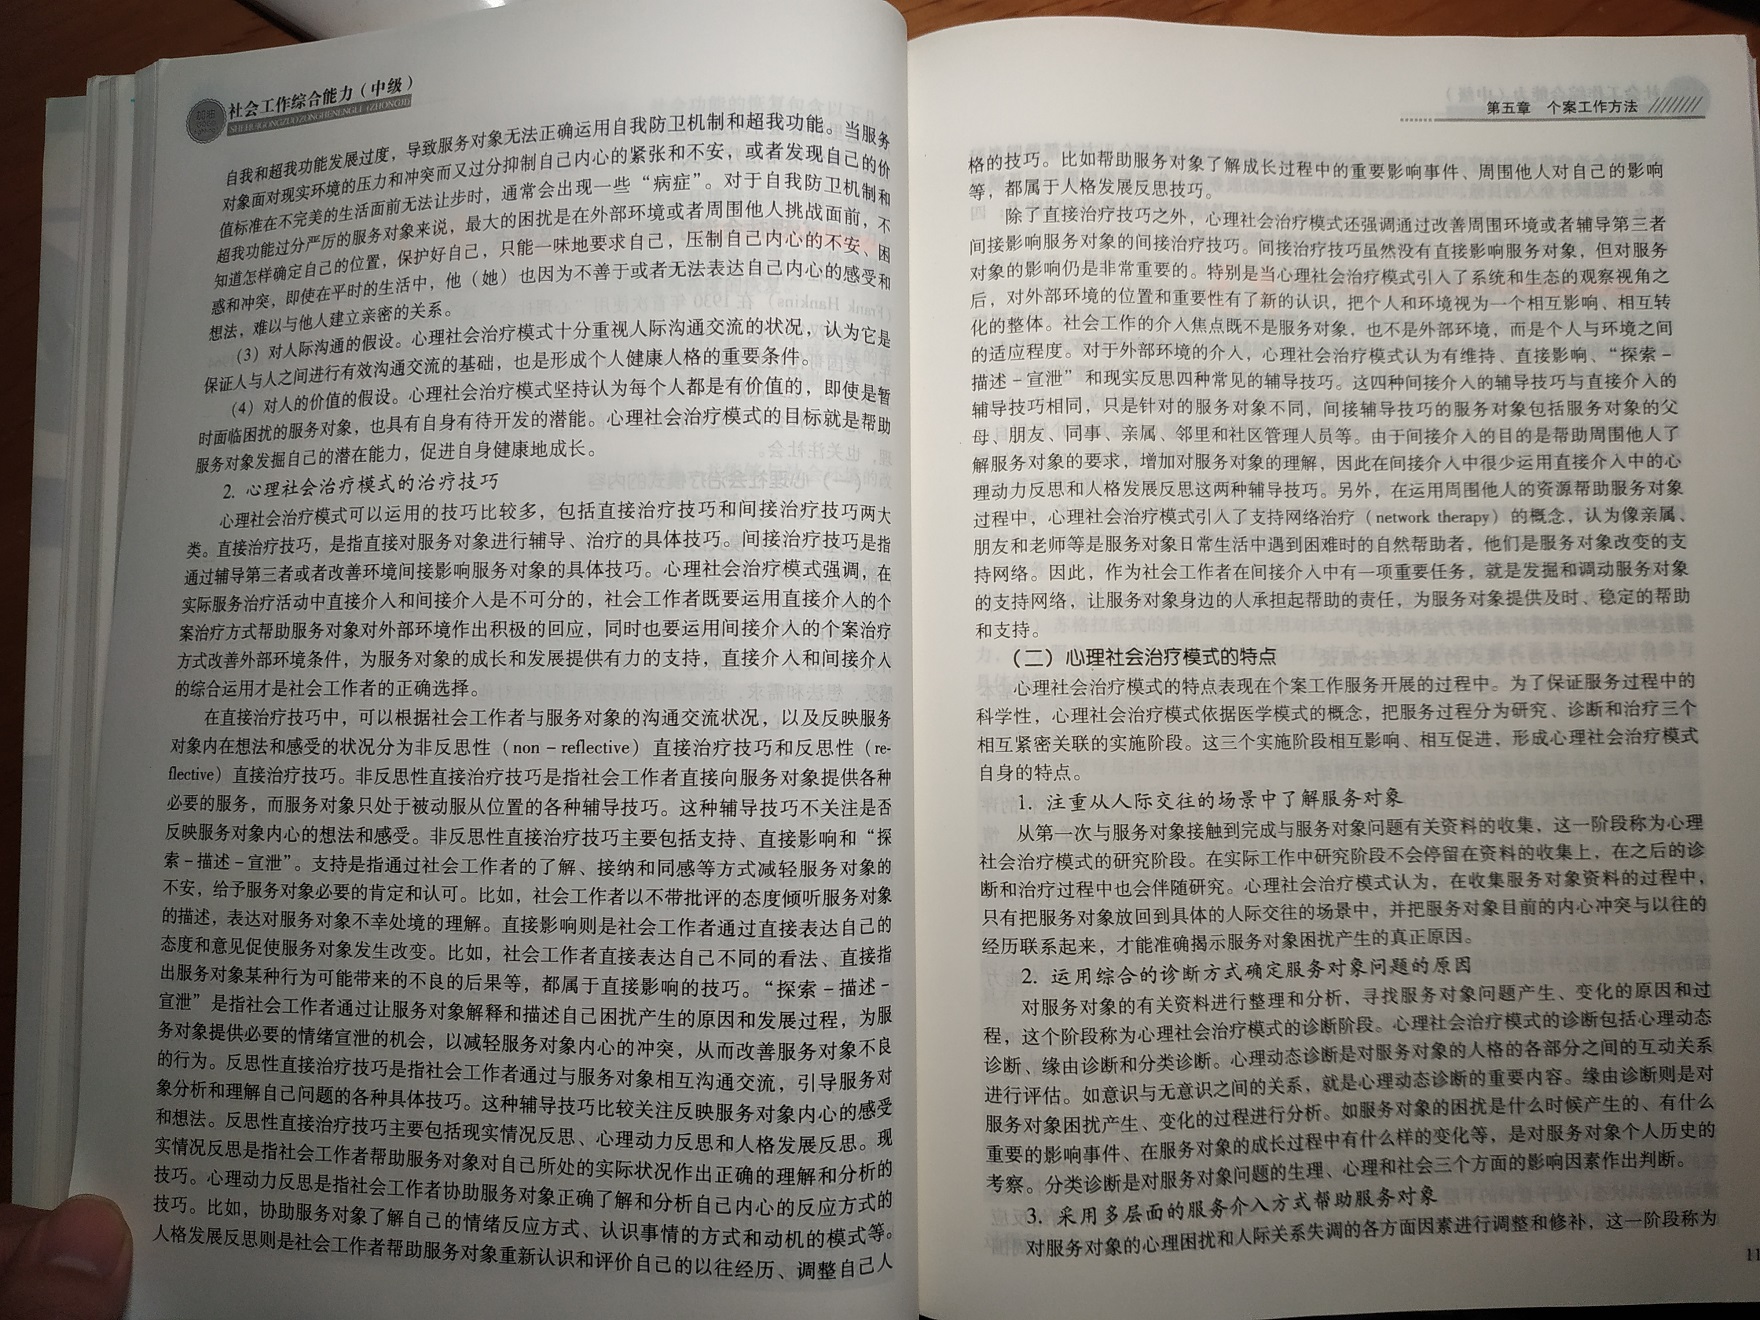 社会工作综合能力（中级）
SHEHUIGONGZUOZONGHENENGLI (ZHONGJI)
自我和超我功能发展过度，导致服务对象无法正确运用自我防卫机制和超我功能。当服务
对象面对现实环境的压力和冲突而又过分抑制自己内心的紧张和不安，或者发现自己的价
值标准在不完美的生活面前无法让步时，通常会出现一些“病症”。对于自我防卫机制和
超我功能过分严厉的服务对象来说，最大的困扰是在外部环境或者周围他人挑战面前，不
知道怎样确定自己的位置，保护好自己，只能一味地要求自己，压制自己内心的不安、困
惑和冲突，即使在平时的生活中，他（她）也因为不善于或者无法表达自己内心的感受和
想法，难以与他人建立亲密的关系。
（3）对人际沟通的假设。心理社会治疗模式十分重视人际沟通交流的状况，认为它是
保证人与人之间进行有效沟通交流的基础，也是形成个人健康人格的重要条件。
（4）对人的价值的假设。心理社会治疗模式坚持认为每个人都是有价值的，即使是暂
时面临困扰的服务对象，也具有自身有待开发的潜能。心理社会治疗模式的目标就是帮助
服务对象发掘自己的潜在能力，促进自身健康地成长。
2. 心理社会治疗模式的治疗技巧
心理社会治疗模式可以运用的技巧比较多，包括直接治疗技巧和间接治疗技巧两大
类。直接治疗技巧，是指直接对服务对象进行辅导、治疗的具体技巧。间接治疗技巧是指
通过辅导第三者或者改善环境间接影响服务对象的具体技巧。心理社会治疗模式强调，在
实际服务治疗活动中直接介入和间接介入是不可分的，社会工作者既要运用直接介入的个
案治疗方式帮助服务对象对外部环境作出积极的回应，同时也要运用间接介入的个案治疗
方式改善外部环境条件，为服务对象的成长和发展提供有力的支持，直接介入和间接介入
的综合运用才是社会工作者的正确选择。
在直接治疗技巧中，可以根据社会工作者与服务对象的沟通交流状况，以及反映服务
对象内在想法和感受的状况分为非反思性（non－reflective）直接治疗技巧和反思性（re-
flective）直接治疗技巧。非反思性直接治疗技巧是指社会工作者直接向服务对象提供各种
必要的服务，而服务对象只处于被动服从位置的各种辅导技巧。这种辅导技巧不关注是否
反映服务对象内心的想法和感受。非反思性直接治疗技巧主要包括支持、直接影响和“探
索－描述－宣泄”。支持是指通过社会工作者的了解、接纳和同感等方式减轻服务对象的
不安，给予服务对象必要的肯定和认可。比如，社会工作者以不带批评的态度倾听服务对象
的描述，表达对服务对象不幸处境的理解。直接影响则是社会工作者通过直接表达自己的
态度和意见促使服务对象发生改变。比如，社会工作者直接表达自己不同的看法、直接指
出服务对象某种行为可能带来的不良的后果等，都属于直接影响的技巧。“探索－描述－
宣泄”是指社会工作者通过让服务对象解释和描述自己困扰产生的原因和发展过程，为服
务对象提供必要的情绪宣泄的机会，以减轻服务对象内心的冲突，从而改善服务对象不良
的行为。反思性直接治疗技巧是指社会工作者通过与服务对象相互沟通交流，引导服务对
象分析和理解自己问题的各种具体技巧。这种辅导技巧比较关注反映服务对象内心的感受
和想法。反思性直接治疗技巧主要包括现实情况反思、心理动力反思和人格发展反思。现
实情况反思是指社会工作者帮助服务对象对自己所处的实际状况作出正确的理解和分析的
技巧。心理动力反思是指社会工作者协助服务对象正确了解和分析自己内心的反应方式的
技巧。比如，协助服务对象了解自己的情绪反应方式、认识事情的方式和动机的模式等。
人格发展反思则是社会工作者帮助服务对象重新认识和评价自己的以往经历、调整自己人
第五章 个案工作方法
格的技巧。比如帮助服务对象了解成长过程中的重要影响事件、周围他人对自己的影响
等，都属于人格发展反思技巧。
除了直接治疗技巧之外，心理社会治疗模式还强调通过改善周围环境或者辅导第三者
间接影响服务对象的间接治疗技巧。间接治疗技巧虽然没有直接影响服务对象，但对服务
对象的影响仍是非常重要的。特别是当心理社会治疗模式引入了系统和生态的观察视角之
后，对外部环境的位置和重要性有了新的认识，把个人和环境视为一个相互影响、相互转
化的整体。社会工作的介入焦点既不是服务对象，也不是外部环境，而是个人与环境之间
的适应程度。对于外部环境的介入，心理社会治疗模式认为有维持、直接影响、“探索－
描述－宣泄”和现实反思四种常见的辅导技巧。这四种间接介入的辅导技巧与直接介入的
辅导技巧相同，只是针对的服务对象不同，间接辅导技巧的服务对象包括服务对象的父
母、朋友、同事、亲属、邻里和社区管理人员等。由于间接介入的目的是帮助周围他人了
解服务对象的要求，增加对服务对象的理解，因此在间接介入中很少运用直接介入中的心
理动力反思和人格发展反思这两种辅导技巧。另外，在运用周围他人的资源帮助服务对象
过程中，心理社会治疗模式引入了支持网络治疗（network therapy）的概念，认为像亲属、
朋友和老师等是服务对象日常生活中遇到困难时的自然帮助者，他们是服务对象改变的支
持网络。因此，作为社会工作者在间接介入中有一项重要任务，就是发掘和调动服务对象
的支持网络，让服务对象身边的人承担起帮助的责任，为服务对象提供及时、稳定的帮助
和支持。
（二）心理社会治疗模式的特点
心理社会治疗模式的特点表现在个案工作服务开展的过程中。为了保证服务过程中的
科学性，心理社会治疗模式依据医学模式的概念，把服务过程分为研究、诊断和治疗三个
相互紧密关联的实施阶段。这三个实施阶段相互影响、相互促进，形成心理社会治疗模式
自身的特点。
1. 注重从人际交往的场景中了解服务对象
从第一次与服务对象接触到完成与服务对象问题有关资料的收集，这一阶段称为心理
社会治疗模式的研究阶段。在实际工作中研究阶段不会停留在资料的收集上，在之后的诊
断和治疗过程中也会伴随研究。心理社会治疗模式认为，在收集服务对象资料的过程中，
只有把服务对象放回到具体的人际交往的场景中，并把服务对象目前的内心冲突与以往的
经历联系起来，才能准确揭示服务对象困扰产生的真正原因。
2. 运用综合的诊断方式确定服务对象问题的原因
对服务对象的有关资料进行整理和分析，寻找服务对象问题产生、变化的原因和过
程，这个阶段称为心理社会治疗模式的诊断阶段。心理社会治疗模式的诊断包括心理动态
诊断、缘由诊断和分类诊断。心理动态诊断是对服务对象的人格的各部分之间的互动关系
进行评估。如意识与无意识之间的关系，就是心理动态诊断的重要内容。缘由诊断则是对
服务对象困扰产生、变化的过程进行分析。如服务对象的困扰是什么时候产生的、有什么
重要的影响事件、在服务对象的成长过程中有什么样的变化等，是对服务对象个人历史的
考察。分类诊断是对服务对象问题的生理、心理和社会三个方面的影响因素作出判断。
3. 采用多层面的服务介入方式帮助服务对象
对服务对象的心理困扰和人际关系失调的各方面因素进行调整和修补，这一阶段称为